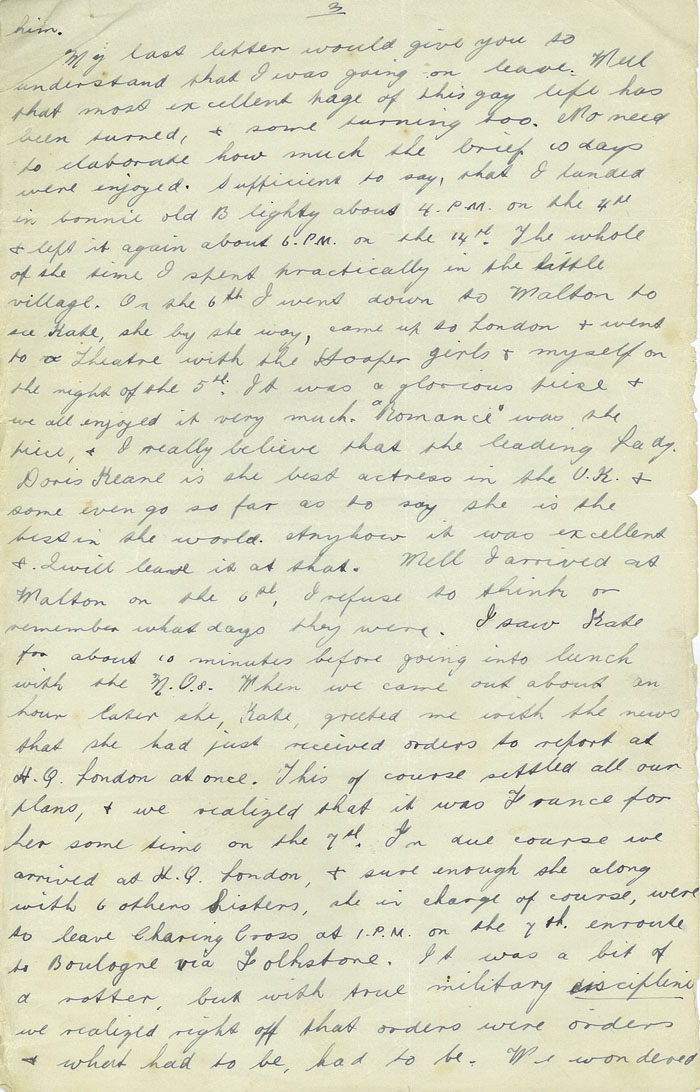 3
him.
My last letter would give you to
understand that I was going on leave. Well
that most excellent page of this gay life has
been turned, & some turning too. No need
to elaborate how much the brief 10 days
were enjoyed. Sufficient to say, that I landed
in bonnie old Blighty about 4. P.M. on the 4th
& left it again about 6. P.M. on the 14th. The whole
of the time I spent practically in the little
village. On the 6th I went down to Malton to
see Kate, she by the way, came up to London & went
to a Theatre with the Hooper girls & myself on
the night of the 5th. It was a glorious piece &
we all enjoyed it very much. "Romance" was the
piece, & I really believe that the leading Lady.
Doris Keane is the best actress in the U.K. &
some even go so far as to say she is the
best in the world. Anyhow it was excellent
&. I will leave it at that. Well I arrived at
Malton on the 6th, I refuse to think or
remember what days they were. I saw Kate
for about 10 minutes before going into lunch
with the M.O.s. When we came out about an
hour later she, Kate, greeted me with the news
that she had just received orders to report at
H.Q. London at once. This of course settled all our
plans, & we realized that it was France for
her some time on the 7th. In due course we
arrived at H.Q. London, & sure enough she along
with 6 others Sisters, she in charge of course, were
to leave Charing Cross at 1. P.M. on the 7th. enroute
to Boulogne via Folkstone. It was a bit of
a rotter, but with true military discipline
we realized right off that orders were orders
& what had to be, had to be. We wondered